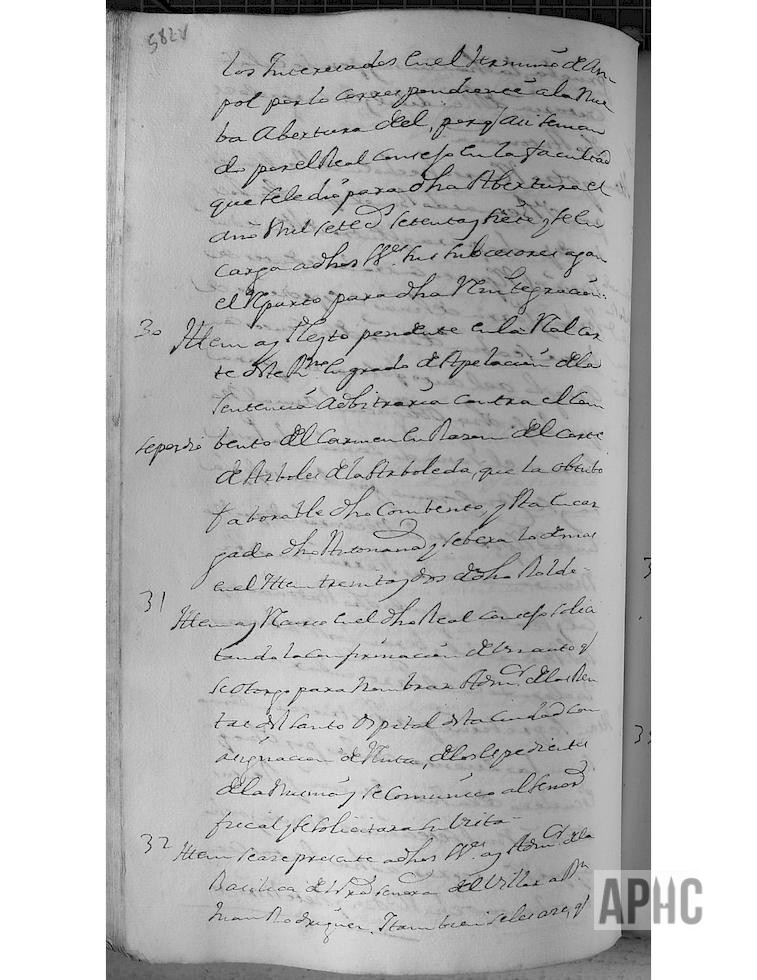 582v
los Interesados en el termino de An-
pol por lo correspondiente a la Nue
ba Abertura del, porq asi se man
do por el Real Consejo en la facultad
que se le dio para dha Abertura el
año mil setec.s setenta y siete, y se en
carga a dhos SS.es sus subcesores agan
el Reparto para dha Reintegracion.
30 Ittem ay Pleyto pendente en la Real Cor
te deste R.no en grado de Apelacion de la
sentencia Arbitraria contra el Com
se perdio
bento del Carmen en Razon del corte
de Arboles de la Arboleda, que la obtubo
faborable dho Combento, y esta encar
gado dho y se bera lo demas
en el Ittem treinta y dos de dho Rolde-
31 Ittem ay Recurso en el dho Real Consejo solici
tando la confirmacion de un auto q
se otorgo para nombrar Adm.or de las Ren
tas del Santo Ospital desta Ciudad con
asignacion de Renta, de los Expedientes
de la misma, y se comunico al señor
fiscal, y se solicitara su Vista-
32 Ittem se ace presente a dhos SS.es ay Adm.or de la
Basilica de Ntra Señora del Villar a D.n
Juan Rodriguez, y tambien se les ace, q
APHC